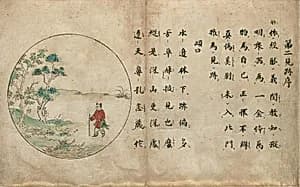 第二見跡序
依經解義閲教知蹤
明衆器為一金体万
物為自己正邪不辨
真偽奚分未入此門
權為見跡
頌曰
水邊林下跡偏多
芳草離披見也麼
縱是深山更深處
遼天鼻孔怎藏他